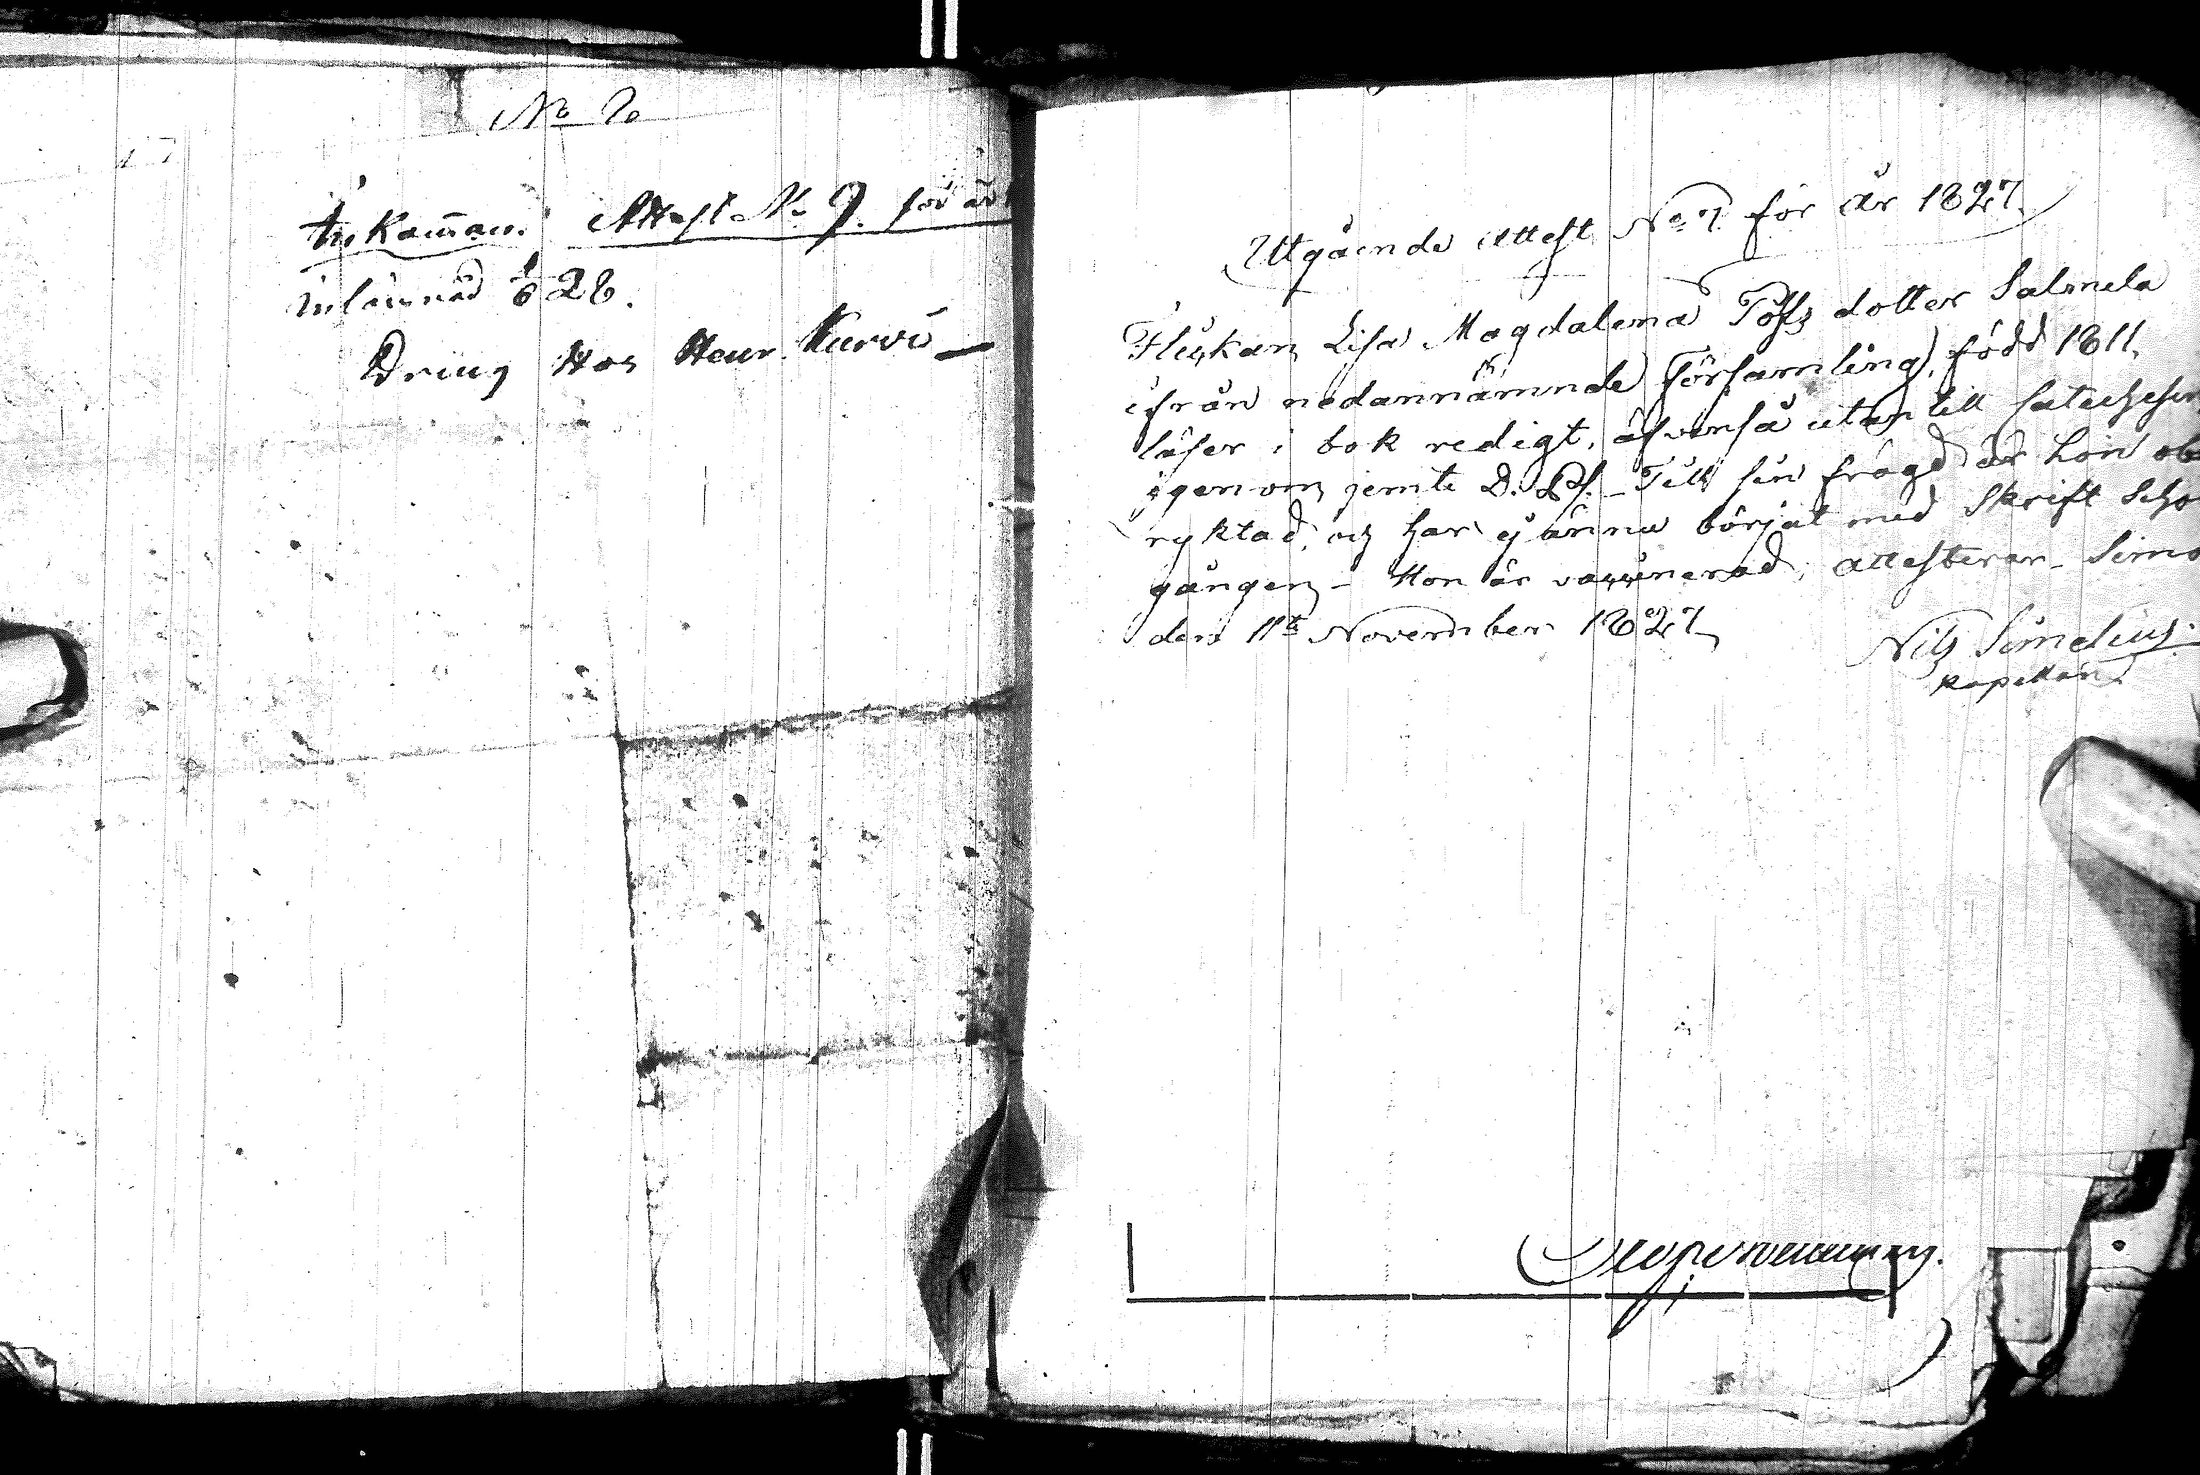 No 2
Inkomman. Attest No 9. för år
inlämnad 6/1 28.
Dräng Hos Henr. Kurvi
Utgående Attest No 7. för År 1827.
Flickan Lisa Magdalena Tofs dotter Salmela
ifrån nedannämnde Församling, född 1811,
läser i bok redigt, äfvenså utantill Catechesen
igenom jemte D. Ps. Till sin frägd är hon obe
ryktad, och har ej ännu börjat med Skrift Scho
gången - Hon är vaccinerad, attesterar - Simo
den 11te November 1827
Nils Simelius.
Kapellan